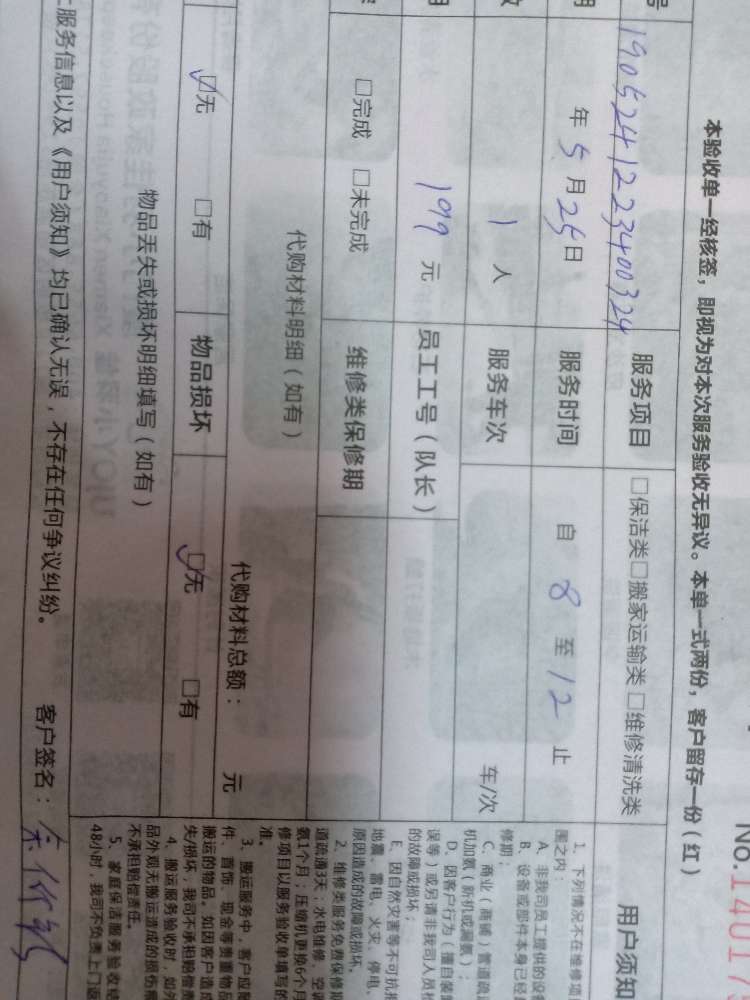 NO.14017
本验收单一经核签，即视为对本次服务验收无异议。本单一式两份，客户留存一份（红）
号 190524122340032 4 服务项目 □保洁类□搬家运输类 □维修清洗类
年 5 月 25 日 服务时间 自 8 至 12 止
1 人 服务车次 车/次
199 元 员工工号（队长）
□完成 □未完成 维修类保修期
代购材料明细（如有） 代购材料总额： 元
☑无 □有 物品损坏 ☑无 □有
物品丢失或损坏明细填写（如有）
服务信息以及《用户须知》均已确认无误，不存在任何争议纠纷。 客户签名：
用户须知
1、下列情况不在维修项
围之内：
A、非我司员工提供的设
B、设备或部件本身已经
修期；
C、商业（商铺）管道疏
机加氨（新机或漏氨）；
D、因客户行为（擅自装
误等）或另请非我司人员
的故障或损坏；
E、因自然灾害等不可抗
地震、雷电、火灾、停电、
原因造成的故障或损坏。
2、维修类服务免费保修期
道疏通3天；水电维修、空调
氨1个月；压缩机更换6个月
修项目以服务验收单填写的
准。
3、搬运服务中，客户应
件、首饰、现金等贵重物品
搬运的物品。如因客户造成
失/损坏，我司不承担赔偿责
4、搬运服务验收时，如外
品外观无搬运造成的损伤
不承担赔偿责任。
5、家庭保洁服务验收
48小时，我司不负责上门返